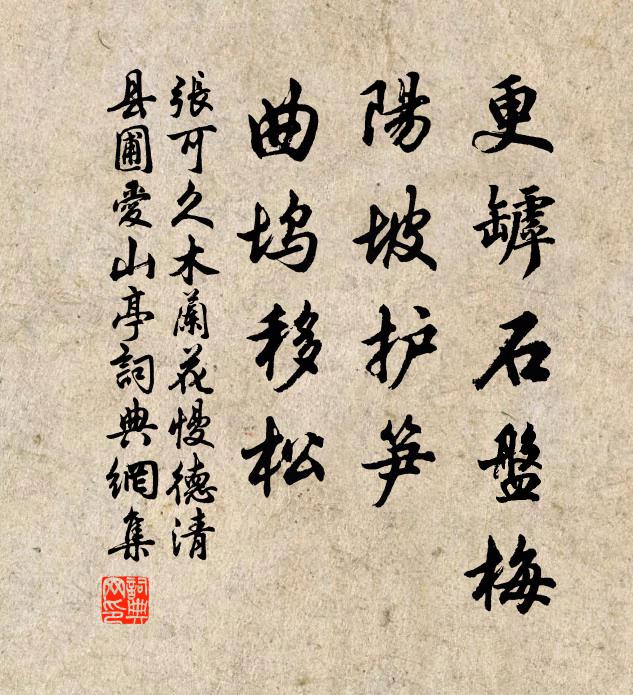 更罅石盤梅
陽坡护笋
曲坞移松
張可久木蘭花慢德清
县圃愛山亭詞典網集
詞典網印